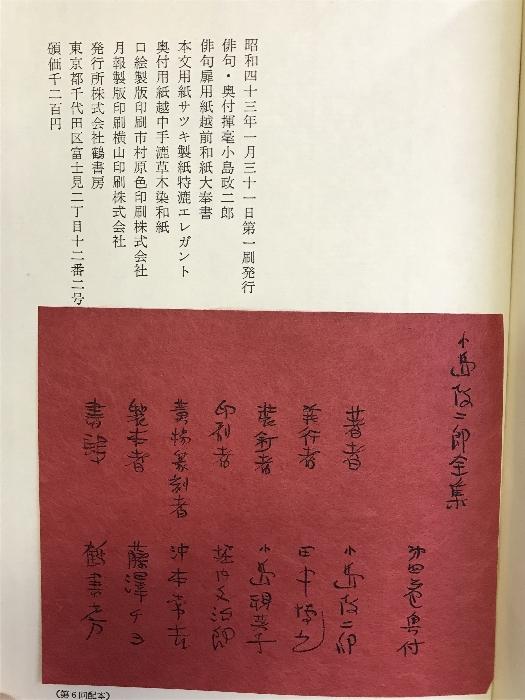 昭和四十三年一月三十一日第一刷発行
俳句・奥付揮毫小島政二郎
俳句扉用紙越前和紙大奉書
本文用紙サツキ製紙特漉エレガント
奥付用紙越中手漉草木染和紙
口絵製版印刷市村原色印刷株式会社
月報製版印刷横山印刷株式会社
発行所株式会社鶴書房
東京都千代田区富士見二丁目十二番二号
頒価千二百円
小島政二郎全集
第四巻奥付
著者 小島政二郎
発行者 田中
装釘者 小島視英子
印刷者 堀内文治郎
黄楊篆刻者 沖本常吉
製本者 藤澤チヨ
書肆 鶴書房
(第6回配本)